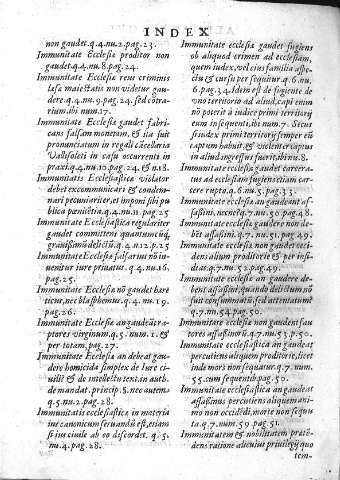 INDEX
non gaudet. q. 4. nu. 2. pag. 23.
Immunitate Ecclesiæ proditor non
gaudet. q. 4. nu. 8. pag. 24.
Immunitate Ecclesiæ reus criminis
læsæ maiestatis non videtur gau-
dere. q. 4. nu. 9. pag. 24. sed cõtra-
rium, ibi num. 17.
Immunitate Ecclesiæ gaudet fabri-
cans falsam monetam, & ita fuit
pronunciatum in regali cãcellaria
Vallisoleti in casu occurrenti in
praxi. q. 4. nu. 10. pag. 24. & n. 18.
Immunitatis Ecclesiasticæ violator
debet excommunicari & condem-
nari pecuniariter, et imponi sibi pu
blica pænitẽtia. q. 4. nu. 11. pag. 25
Immunitate Ecclesiastica regulariter
gaudet committens quantumcũq;
gravissimũ delictũ. q. 4. n. 12. p. 25
Immunitate Ecclesiæ falsarius nõ in-
uenitur iure priuatus. q. 4. nu. 16.
pag. 25.
Immunitate Ecclesiæ nõ gaudet hære
ticus, nec blasphemus. q. 4. nu. 19.
pag. 26.
Immunitate Ecclesiæ an gaudeãt ra-
ptores virginum. q. 5. num. 1. &
per totam. pag. 27.
Immunitate Ecclesiæ an debeat gau-
dere homicida simplex de iure ci-
uili? & de intellectu text. in auth.
de mandat. princip. §. nec autem.
q. 5. nu. 2. pag. 28.
Immunitatis ecclesiasticæ in materia
ius canonicum seruandũ est, etiam
si ius ciuile ab eo discordet. q. 5.
nu. 4. pag. 28.
Immunitate ecclesiæ gaudet fugiens
ob aliquod crimen ad ecclesiam,
quem iudex, vel eius familia aspe-
ctu & cursu persequitur. q. 6. nu.
6. pag. 34. Idem est si fugiente de
vno territorio ad aliud, capi enim
nõ poterit à iudice primi territorij
eum insequenti, ibi nu. 7. Secus
si iudex primi territorij semper eũ
captum habuit, & violenter captus
in aliud ingressus fuerit. ibi nu. 8.
Immunitate ecclesiæ gaudet carcera-
tus ad ecclesiam fugiens etiam car-
cere rupto. q. 6. nu. 5. pag. 33.
Immunitate ecclesiæ an gaudeant as-
sassini, necne? q. 7. nu. 50. pag. 48.
Immunitate ecclesiæ gaudere non de-
bẽt assassini. q. 7. nu. 51. pag. 49.
Immunitate ecclesiæ non gaudet occi-
dens alium proditoriè & per insi-
dias. q. 7. nu. 52. pag. 49.
Immunitate ecclesiæ an gaudere de-
bent assassini, quando delictum nõ
fuit consummatũ, sed attentatum?
q. 7. nu. 54. pag. 50.
Immunitate ecclesiæ non gaudent fau
tores assassinorũ. q. 7. nu. 53. p. 50.
Immunitate ecclesiastica an gaudeat
percutiens aliquem proditoriè, licet
inde mors non sequatur. q. 7. num.
55. cum sequentib. pag. 50.
Immunitate ecclesiastica an gaudeat
assassinus percutiens aliquem ani-
mo non occidẽdi, morte non sequu
ta. q. 7. num. 59. pag. 51.
Immunitatem & nobilitatem prætẽ-
dens ratione alicuius priuilegij quo
tem-